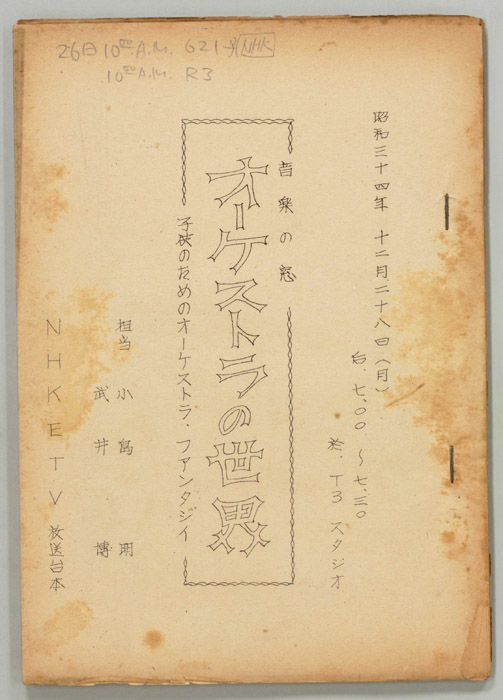 26日 10⁰⁰A.M. 621号 NHK
10⁰⁰A.M. R3
昭和三十四年 十二月二十八日(月)
后.七.00 〜 七.三0
於.T3 スタジオ
音楽の窓
オーケストラの世界
子供のためのオーケストラ.ファンタジイ
担当 小島 明
武井 博
NHKETV 放送台本